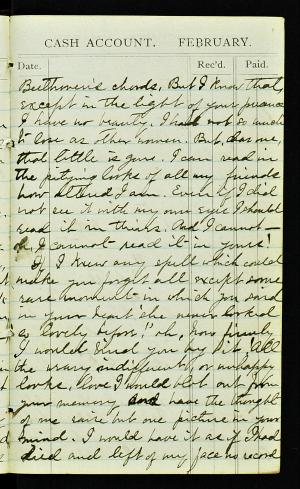 CASH ACCOUNT. FEBRUARY.
Date. Rec'd. Paid.
Beethoven's chords. But I know that,
except in the light of your presence
I have no beauty. I had not so much
to lose as other women. But, dear one,
that little is gone. I can read in
the pitying looks of all my friends
how altered I am. Even if I did
not see it with my own eyes I should
read it in theirs. And I cannot—
oh, I cannot read it in yours!
If I knew any spell which could
make you forget all except some
rare moment in which you said
in your heart "she never looked
so lovely before!" oh, how firmly
I would bind you by it! All
the weary indifferent, or unhappy
looks, love, I would blot out from
your memory, and have the thought
of me raise but one picture in your
mind. I would have it as if I had
died and left of my face no record